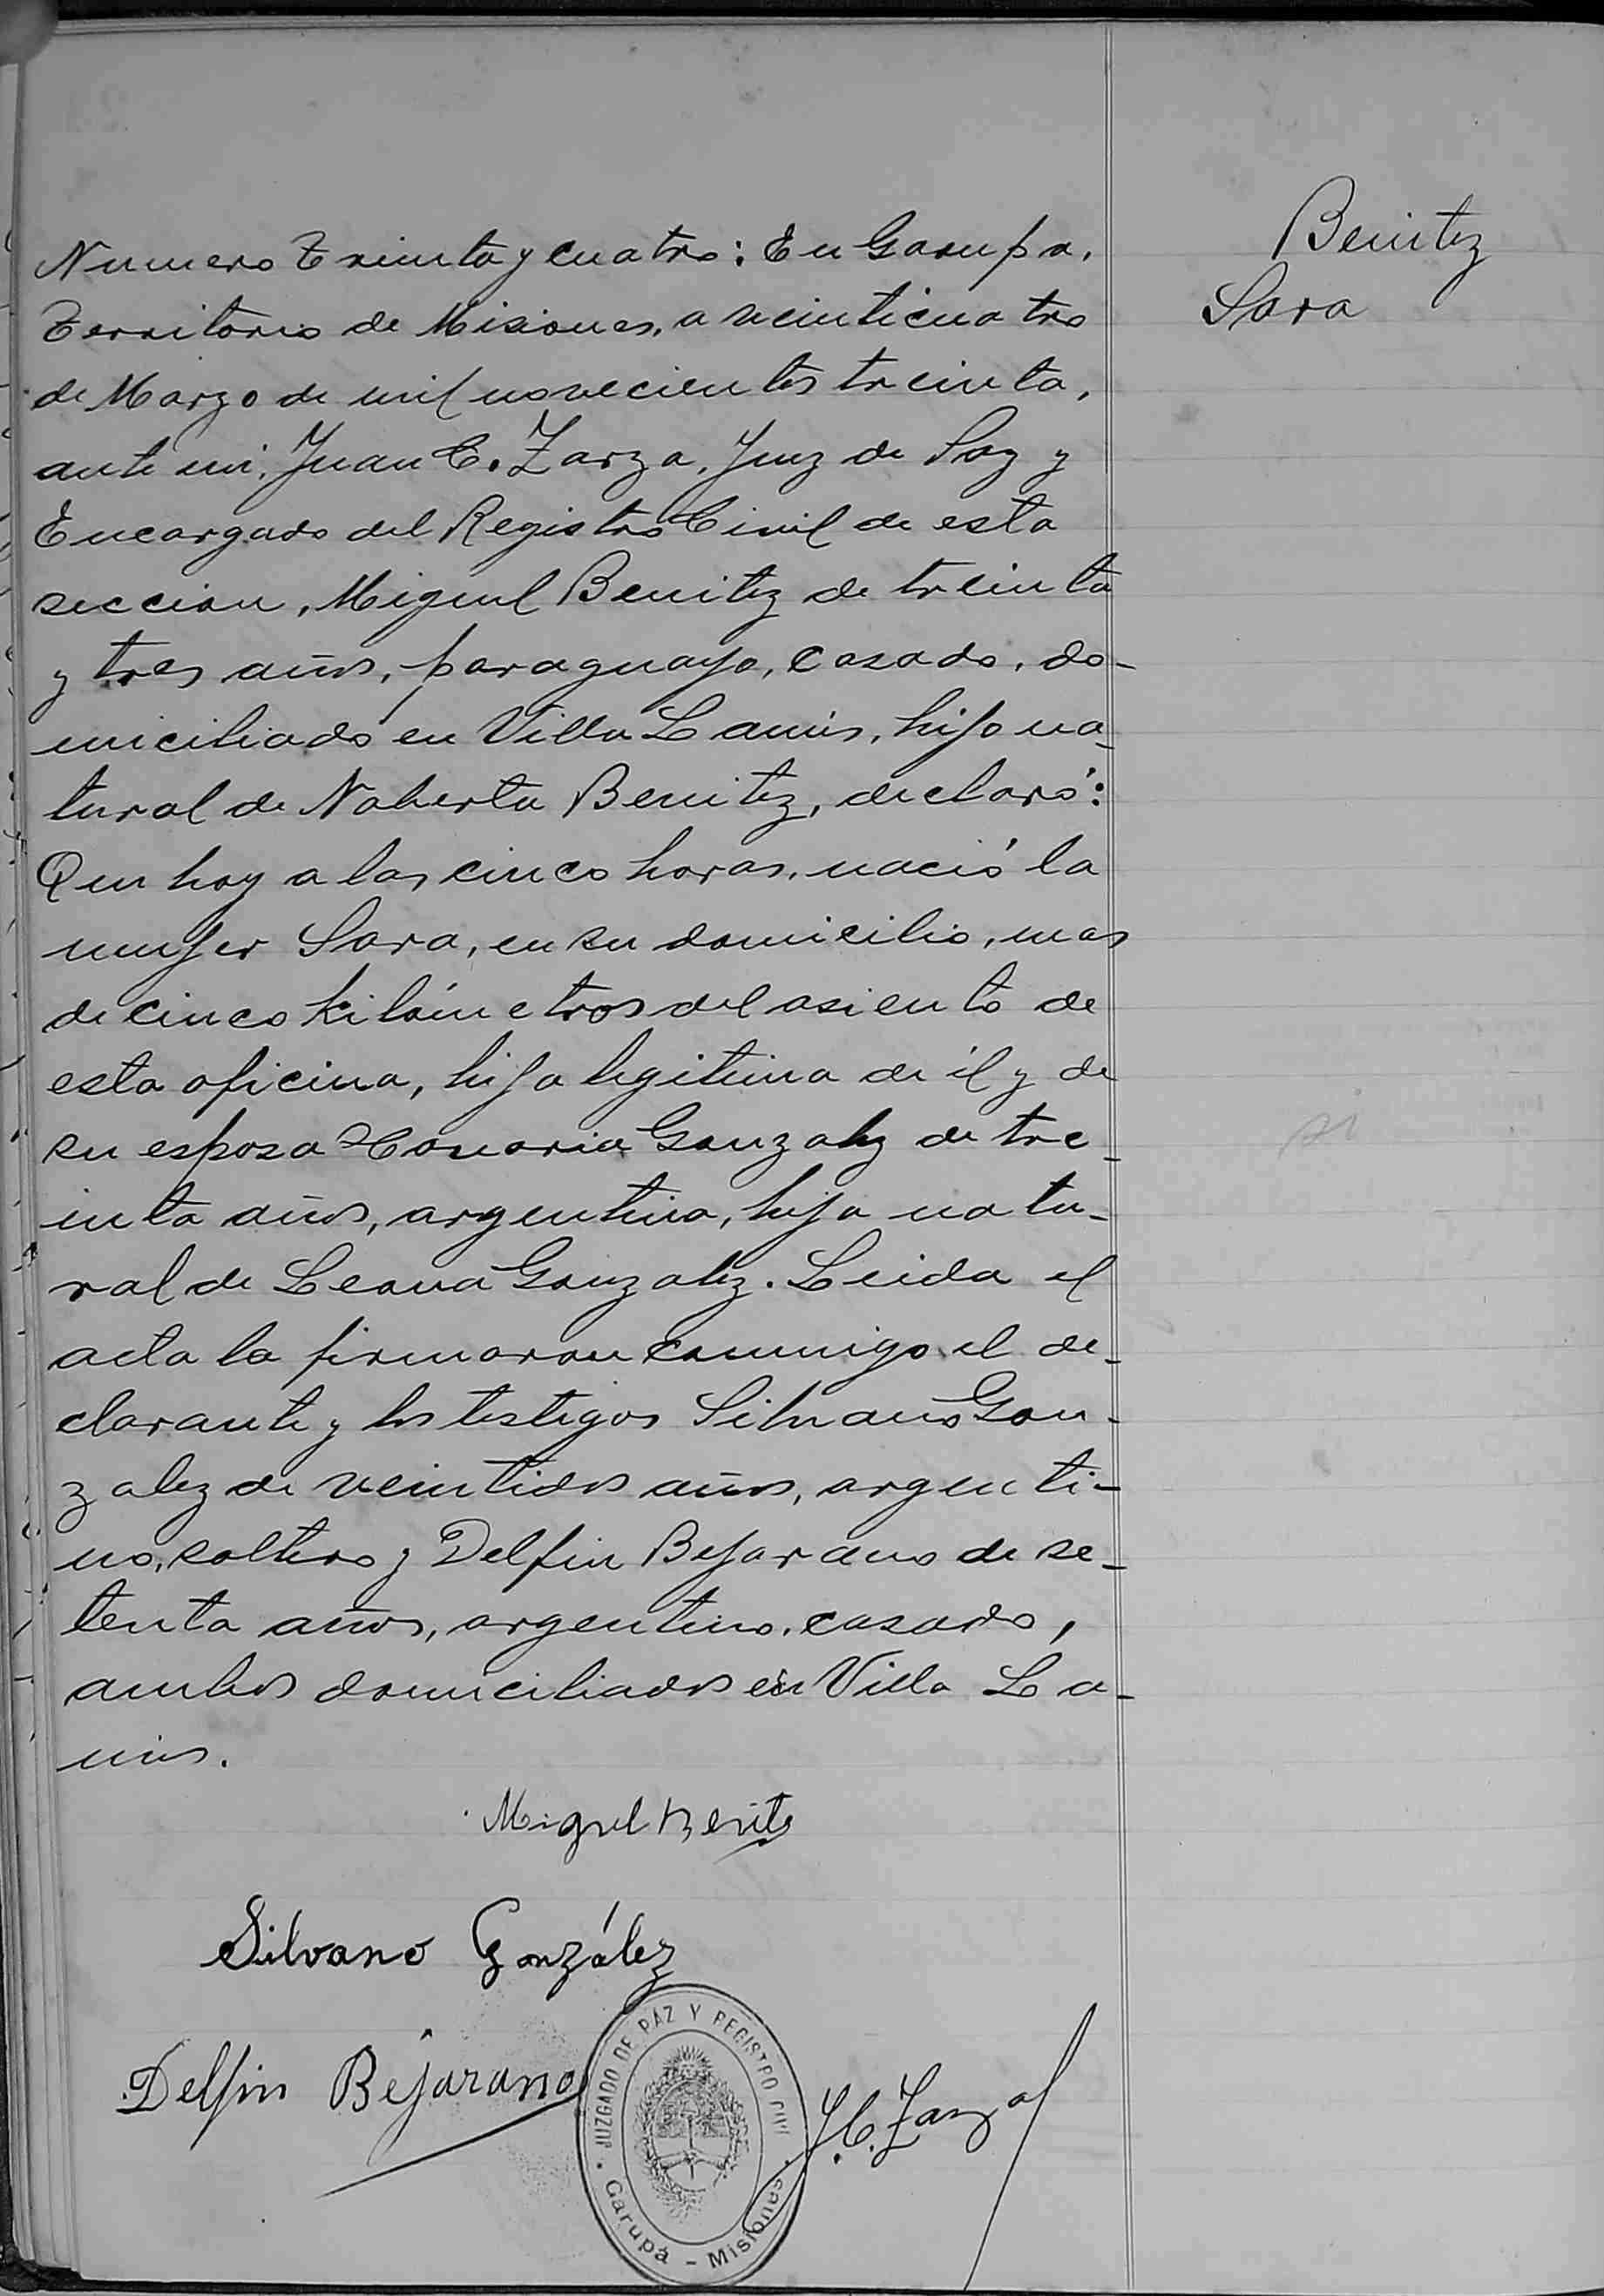 Benitez
Sara
Numero Treinta y cuatro: En Garupa,
Territorio de Misiones, a veinticuatro
de Marzo de mil novecientos treinta,
ante mi, Juan C. Zarza, Juez de Paz y
Encargado del Registro Civil de esta
seccion, Miguel Benitez de treinta
y tres años, paraguayo, casado, do-
miciliado en Villa Lanús, hijo na-
tural de Noberta Benitez, declaró:
Que hoy a las cinco horas, nació la
mujer Sara, en su domicilio, mas
de cinco kilómetros del asiento de
esta oficina, hija legitima de él y de
su esposa Honoria Gonzalez de tre-
inta años, argentina, hija natu-
ral de Leona Gonzalez. Leida el
acta la firmaron conmigo el de-
clarante y los testigos Silvano Gon-
zalez de veintidos años, argenti-
no, soltero y Delfin Bejarano de se-
tenta años, argentino, casado,
ambos domiciliados en Villa La-
nús.
Miguel Benitez
Silvano González
Delfin Bejarano
J.C. Zarza
JUZGADO DE PAZ Y REGISTRO CIVIL
Garupá - Misiones
si